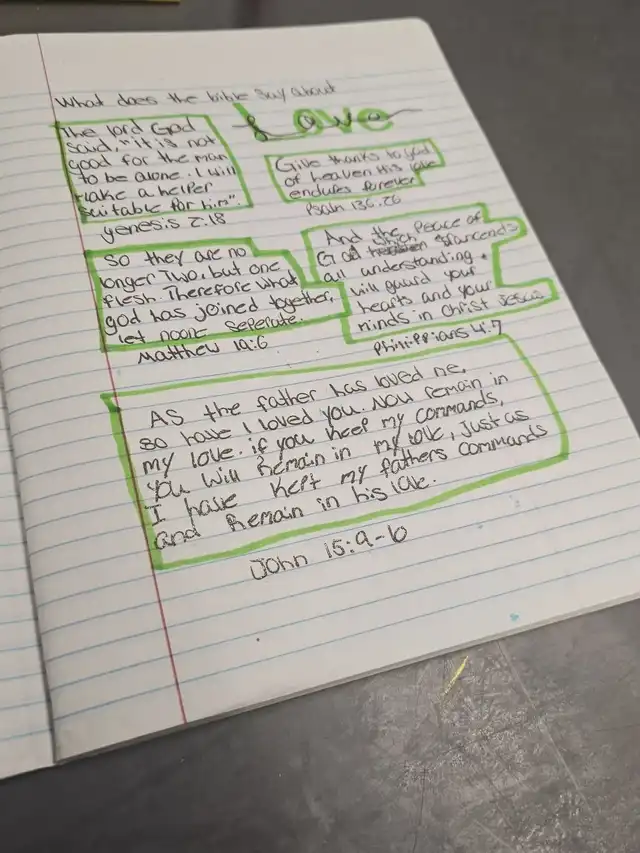 What does the bible say about
Love
The lord God
said, "it is not
good for the man
to be alone. I will
make a helper
suitable for him"
genesis 2:18
Give thanks to god
of heaven His love
endures forever
Psalm 136:26
So they are no
longer Two, but one
flesh. Therefore what
god has joined together,
let noone seperate.
Matthew 19:6
And the Peace of
God which trancends
all understanding,
will guard your
hearts and your
minds in Christ Jesus
Philippians 4:7
As the father has loved me,
so have I loved you. Now remain in
my love. if you keep my commands,
you will Remain in my love, just as
I have kept my fathers commands
and Remain in his love.
John 15:9-10